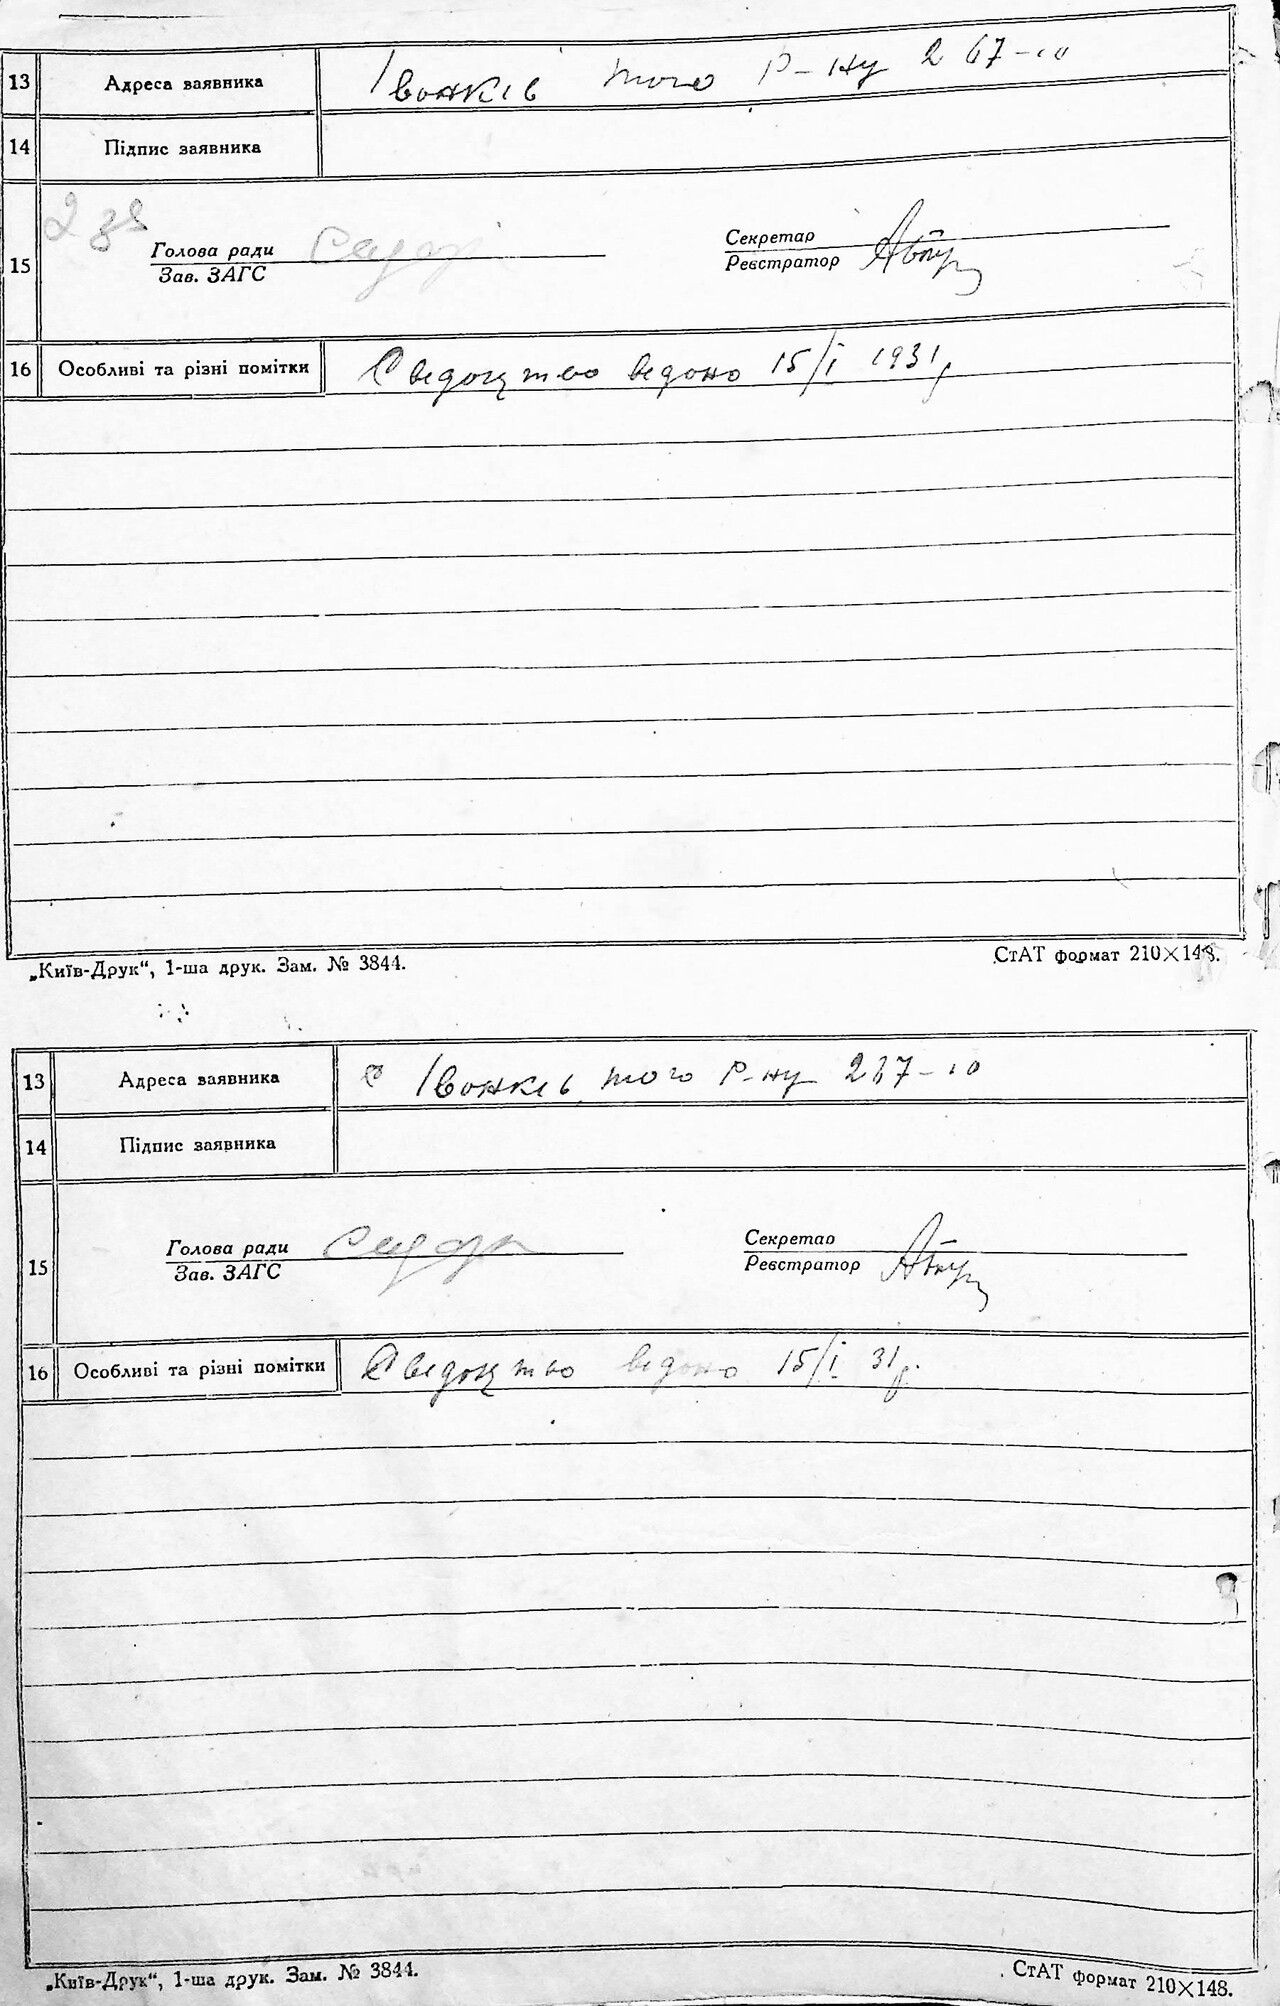 13 Адреса заявника Івонків того р-ну 267-10
14 Підпис заявника
15 Голова ради Секретар
Зав. ЗАГС Реєстратор
16 Особливі та різні помітки Сведоцтво ведоно 15/I 1931 р
„Київ-Друк“, 1-ша друк. Зам. № 3844. СтАТ формат 210×148.
13 Адреса заявника с Івонків того р-ну 267-10
14 Підпис заявника
15 Голова ради Секретар
Зав. ЗАГС Реєстратор
16 Особливі та різні помітки Сведоцтво ведоно 15/I 31 р.
„Київ-Друк“, 1-ша друк. Зам. № 3844. СтАТ формат 210×148.